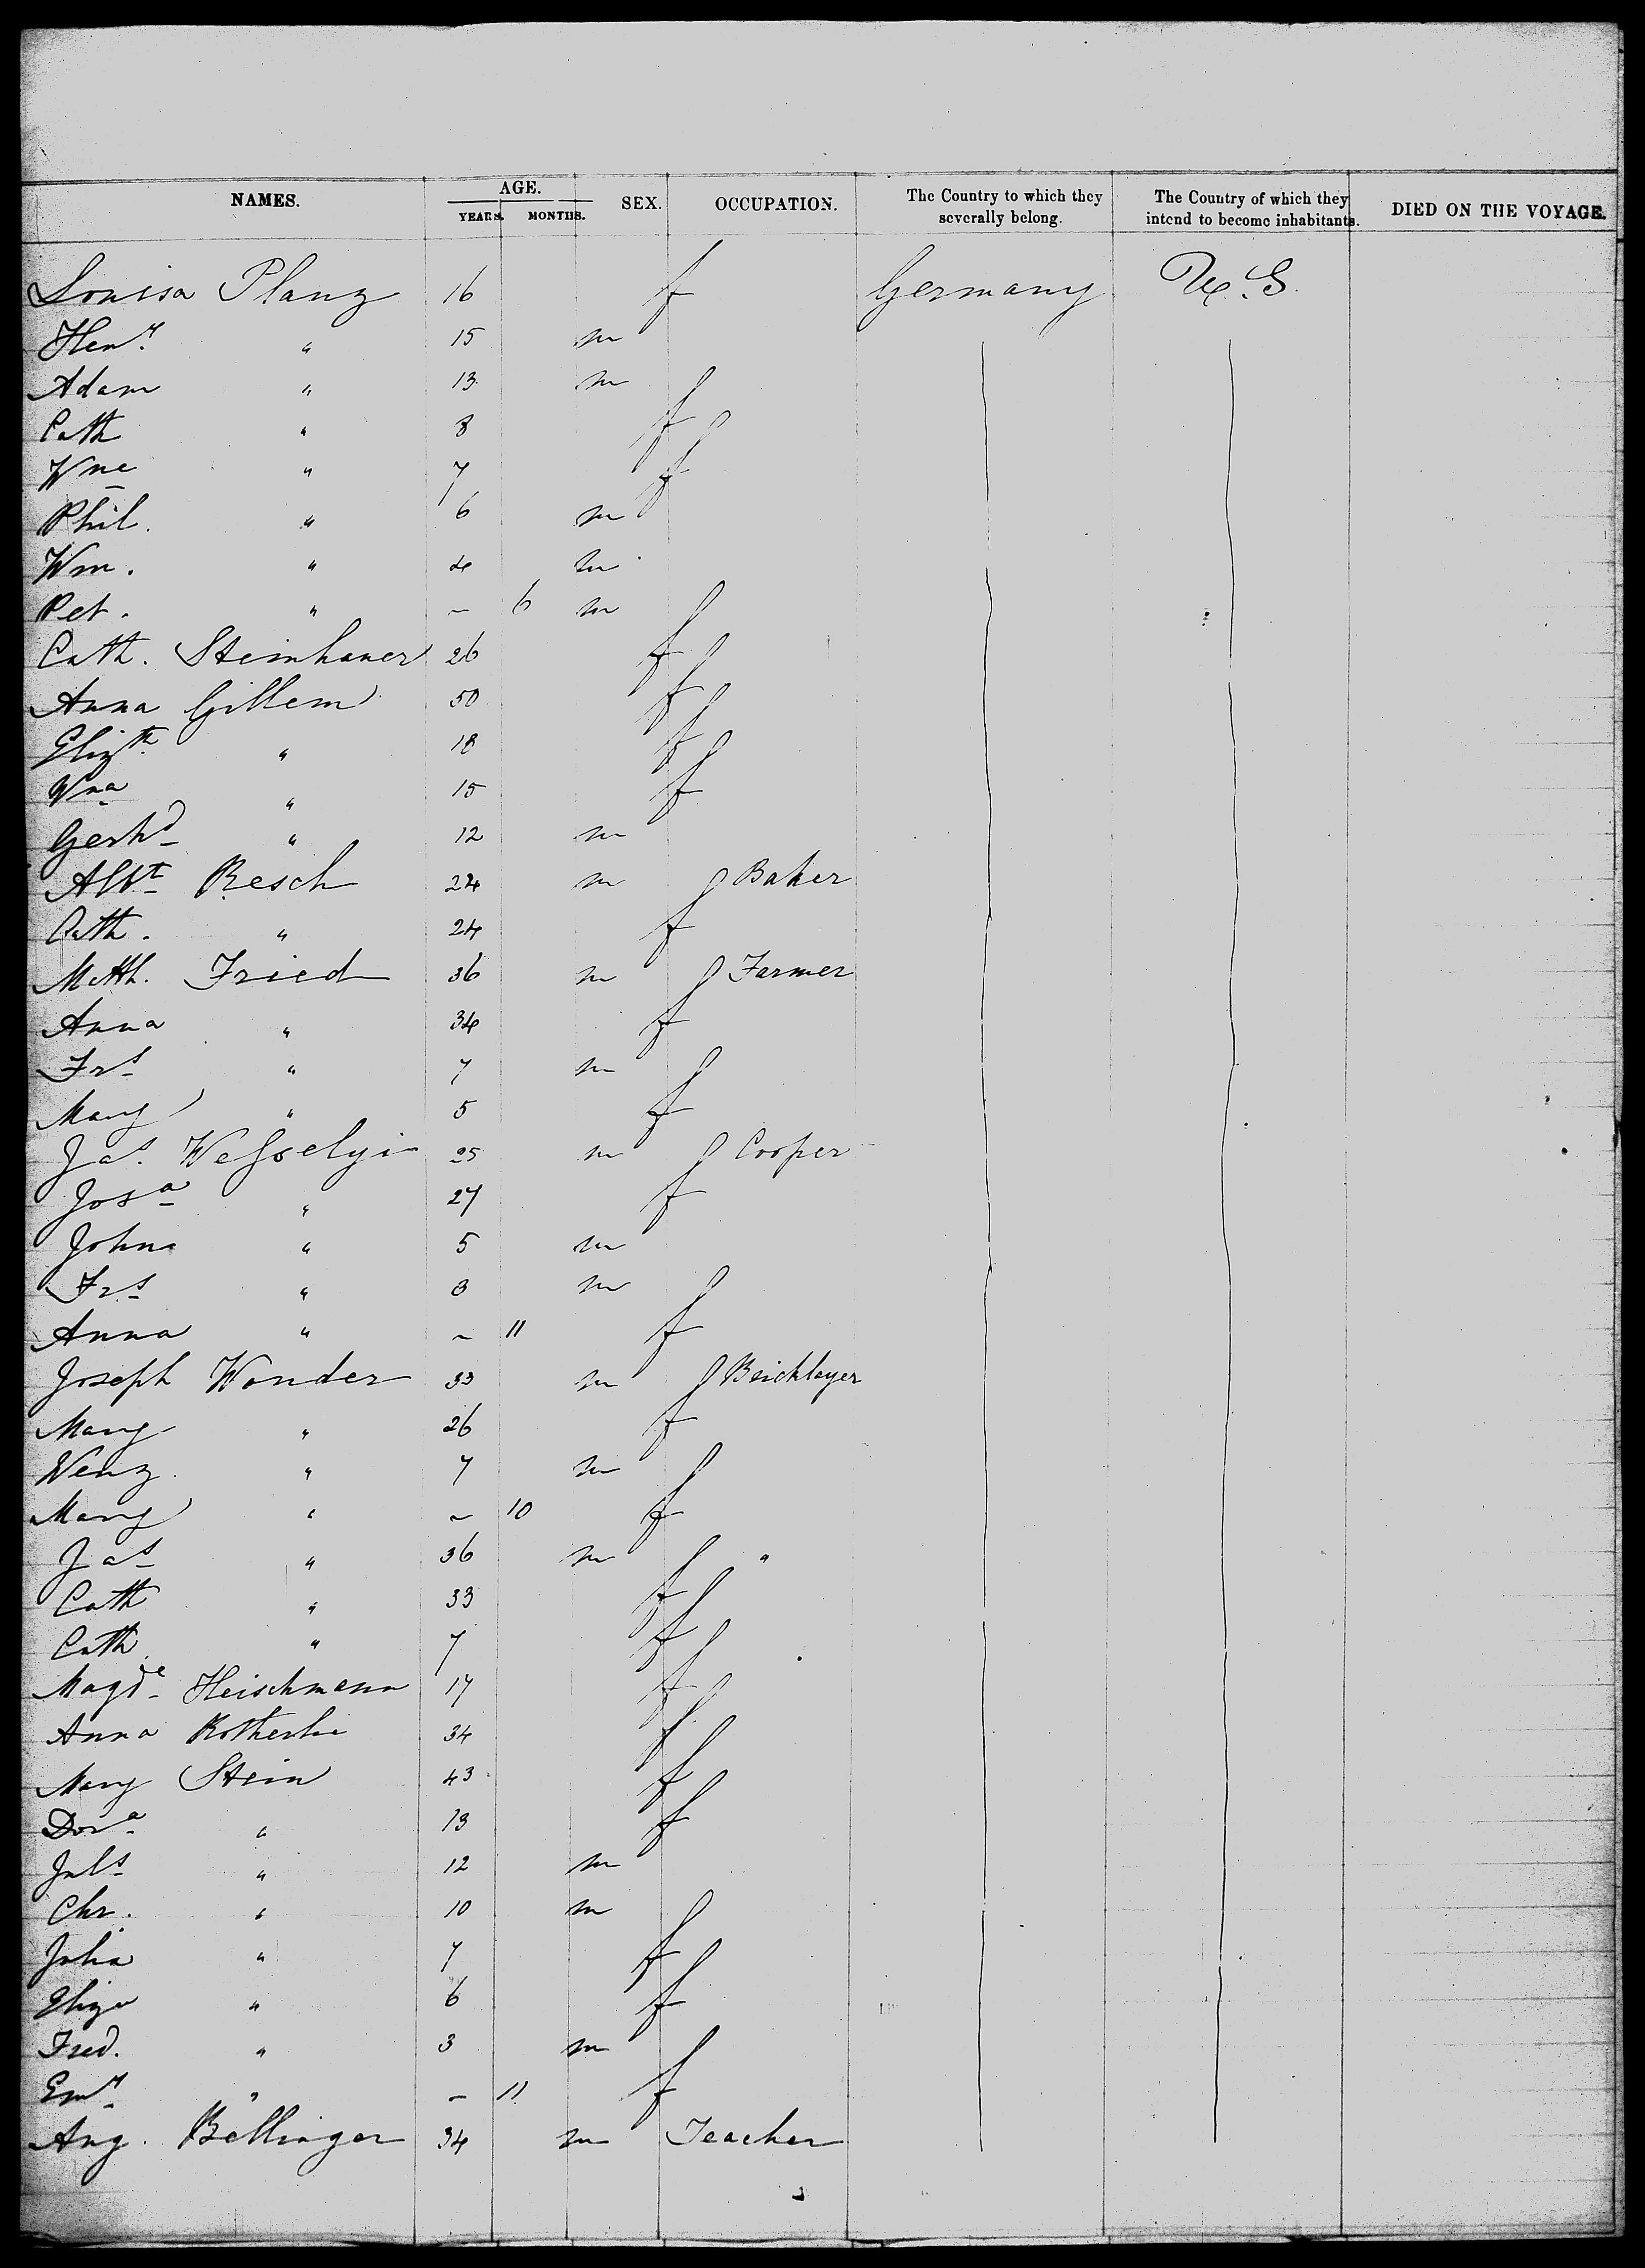 NAMES. AGE. YEARS. MONTHS. SEX. OCCUPATION. The Country to which they severally belong. The Country of which they intend to become inhabitants. DIED ON THE VOYAGE.
Louisa Planz 16 f Germany U.S.
Heny. " 15 m
Adam " 13 m
Cath " 8 f
Wne " 7 f
Phil. " 6 m
Wm. " 4 m
Pet. " – 6 m
Cath. Steinhauer 26 f
Anna Gillem 50 f
Elizth " 18 f
Wna " 15 f
Gerhd " 12 m
Albt Resch 24 m Baker
Cath. " 24 f
Matth. Fried 36 m Farmer
Anna " 34 f
Frs " 7 m
Mary " 5 f
Jas. Wesselyi 25 m Cooper
Josa " 27 f
John " 5 m
Frs " 3 m
Anna " – 11 f
Joseph Wonder 33 m Bricklayer
Mary " 26 f
Wenz. " 7 m
Mary " – 10 f
Jas " 36 m "
Cath " 33 f
Cath " 7 f
Magde Heischmann 17 f
Anna 34 f
Mary Stein 43 f
Dora " 13 f
Juls " 12 m
Chr. " 10 m
Julia " 7 f
Eliza " 6 f
Fred. " 3 m
Emy " – 11 f
Aug. Bellinger 34 m Teacher